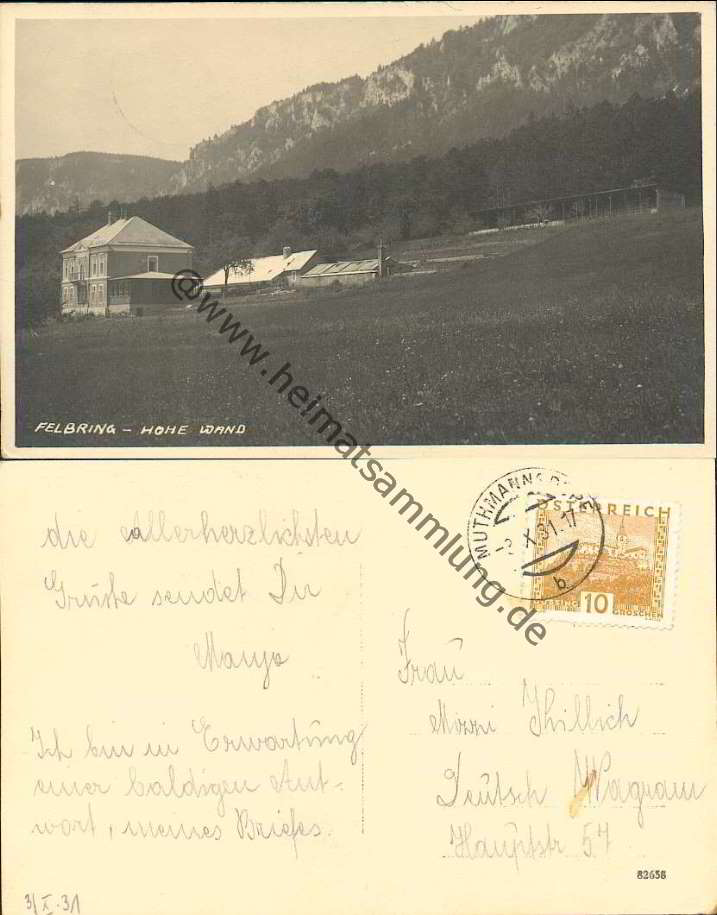 FELBRING - HOHE WAND
@www.heimatsammlung.de
die allerherzlichsten
Grüße sendet Dir
Ich bin in Erwartung
einer baldigen Ant-
wort, meines Briefes.
3/X.31
MUTHMANNSDORF
-2.X.31.17
b
ÖSTERREICH
10
GROSCHEN
Frau
Mizzi
Deutsch Wagram
Hauptstr 57
82658